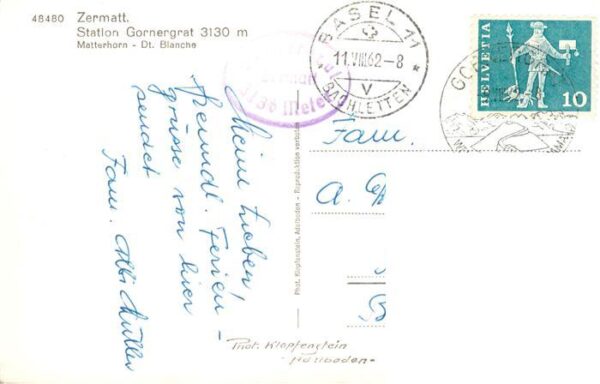 48480 Zermatt.
Station Gornergrat 3130 m
Matterhorn - Dt. Blanche
BASEL 11
11.VIII.62-8
V
BACHLETTEN
HELVETIA
10
3136 Meter
Fam.
A.
Meine Lieben!
Freundl. Ferien-
grüsse von hier
sendet
Fam.
Phot. Klopfenstein, Adelboden - Reproduktion verboten
Phot. Klopfenstein
- Adelboden -